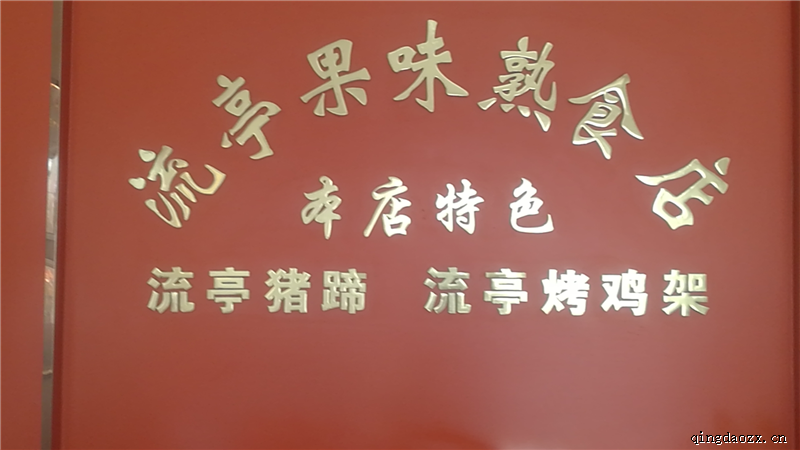 流亭果味熟食店
本店特色
流亭猪蹄 流亭烤鸡架
qingdaozx.cn